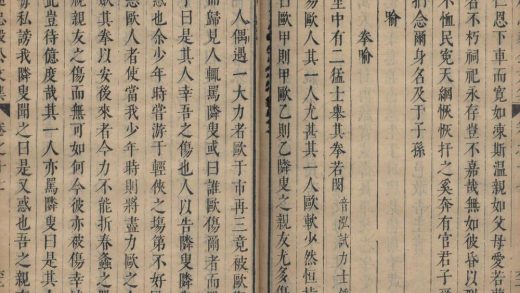 仁恩下車而寬如凍斯温親如父母愛若
者不朽祠祀永存豈不嘉哉無如彼昏以
不恤民寃天網恢恢扞之奚奔有官君子
念爾身名及于子孫
喻
拳喻
里中有二猛士舉其拳若閎音泓試力士
易歐人其一人尤甚其一人歐欶少然恒
曰歐甲則甲歐乙則乙隣叟之親友尤多傷
人偶遇一大力者歐于市再三竟被歐
而歸見人輒罵隣叟或曰誰歐傷爾者而
乎曰是其人幸吾之傷也人以告隣叟
然也余少年時嘗游于輕俠之塲第不好
忿歐人者使當我少年時則將盡力歐之
其拳以安後來者今力不能折春螽之
視親友之傷而無可如何今彼亦被傷幸
此豈待億度哉其一人亦罵隣叟曰是其
私謗我隣叟聞之曰是又惑也吾之親
公文集